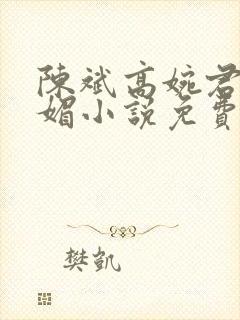 陳斌高婉君
媚小説免費
樊凱